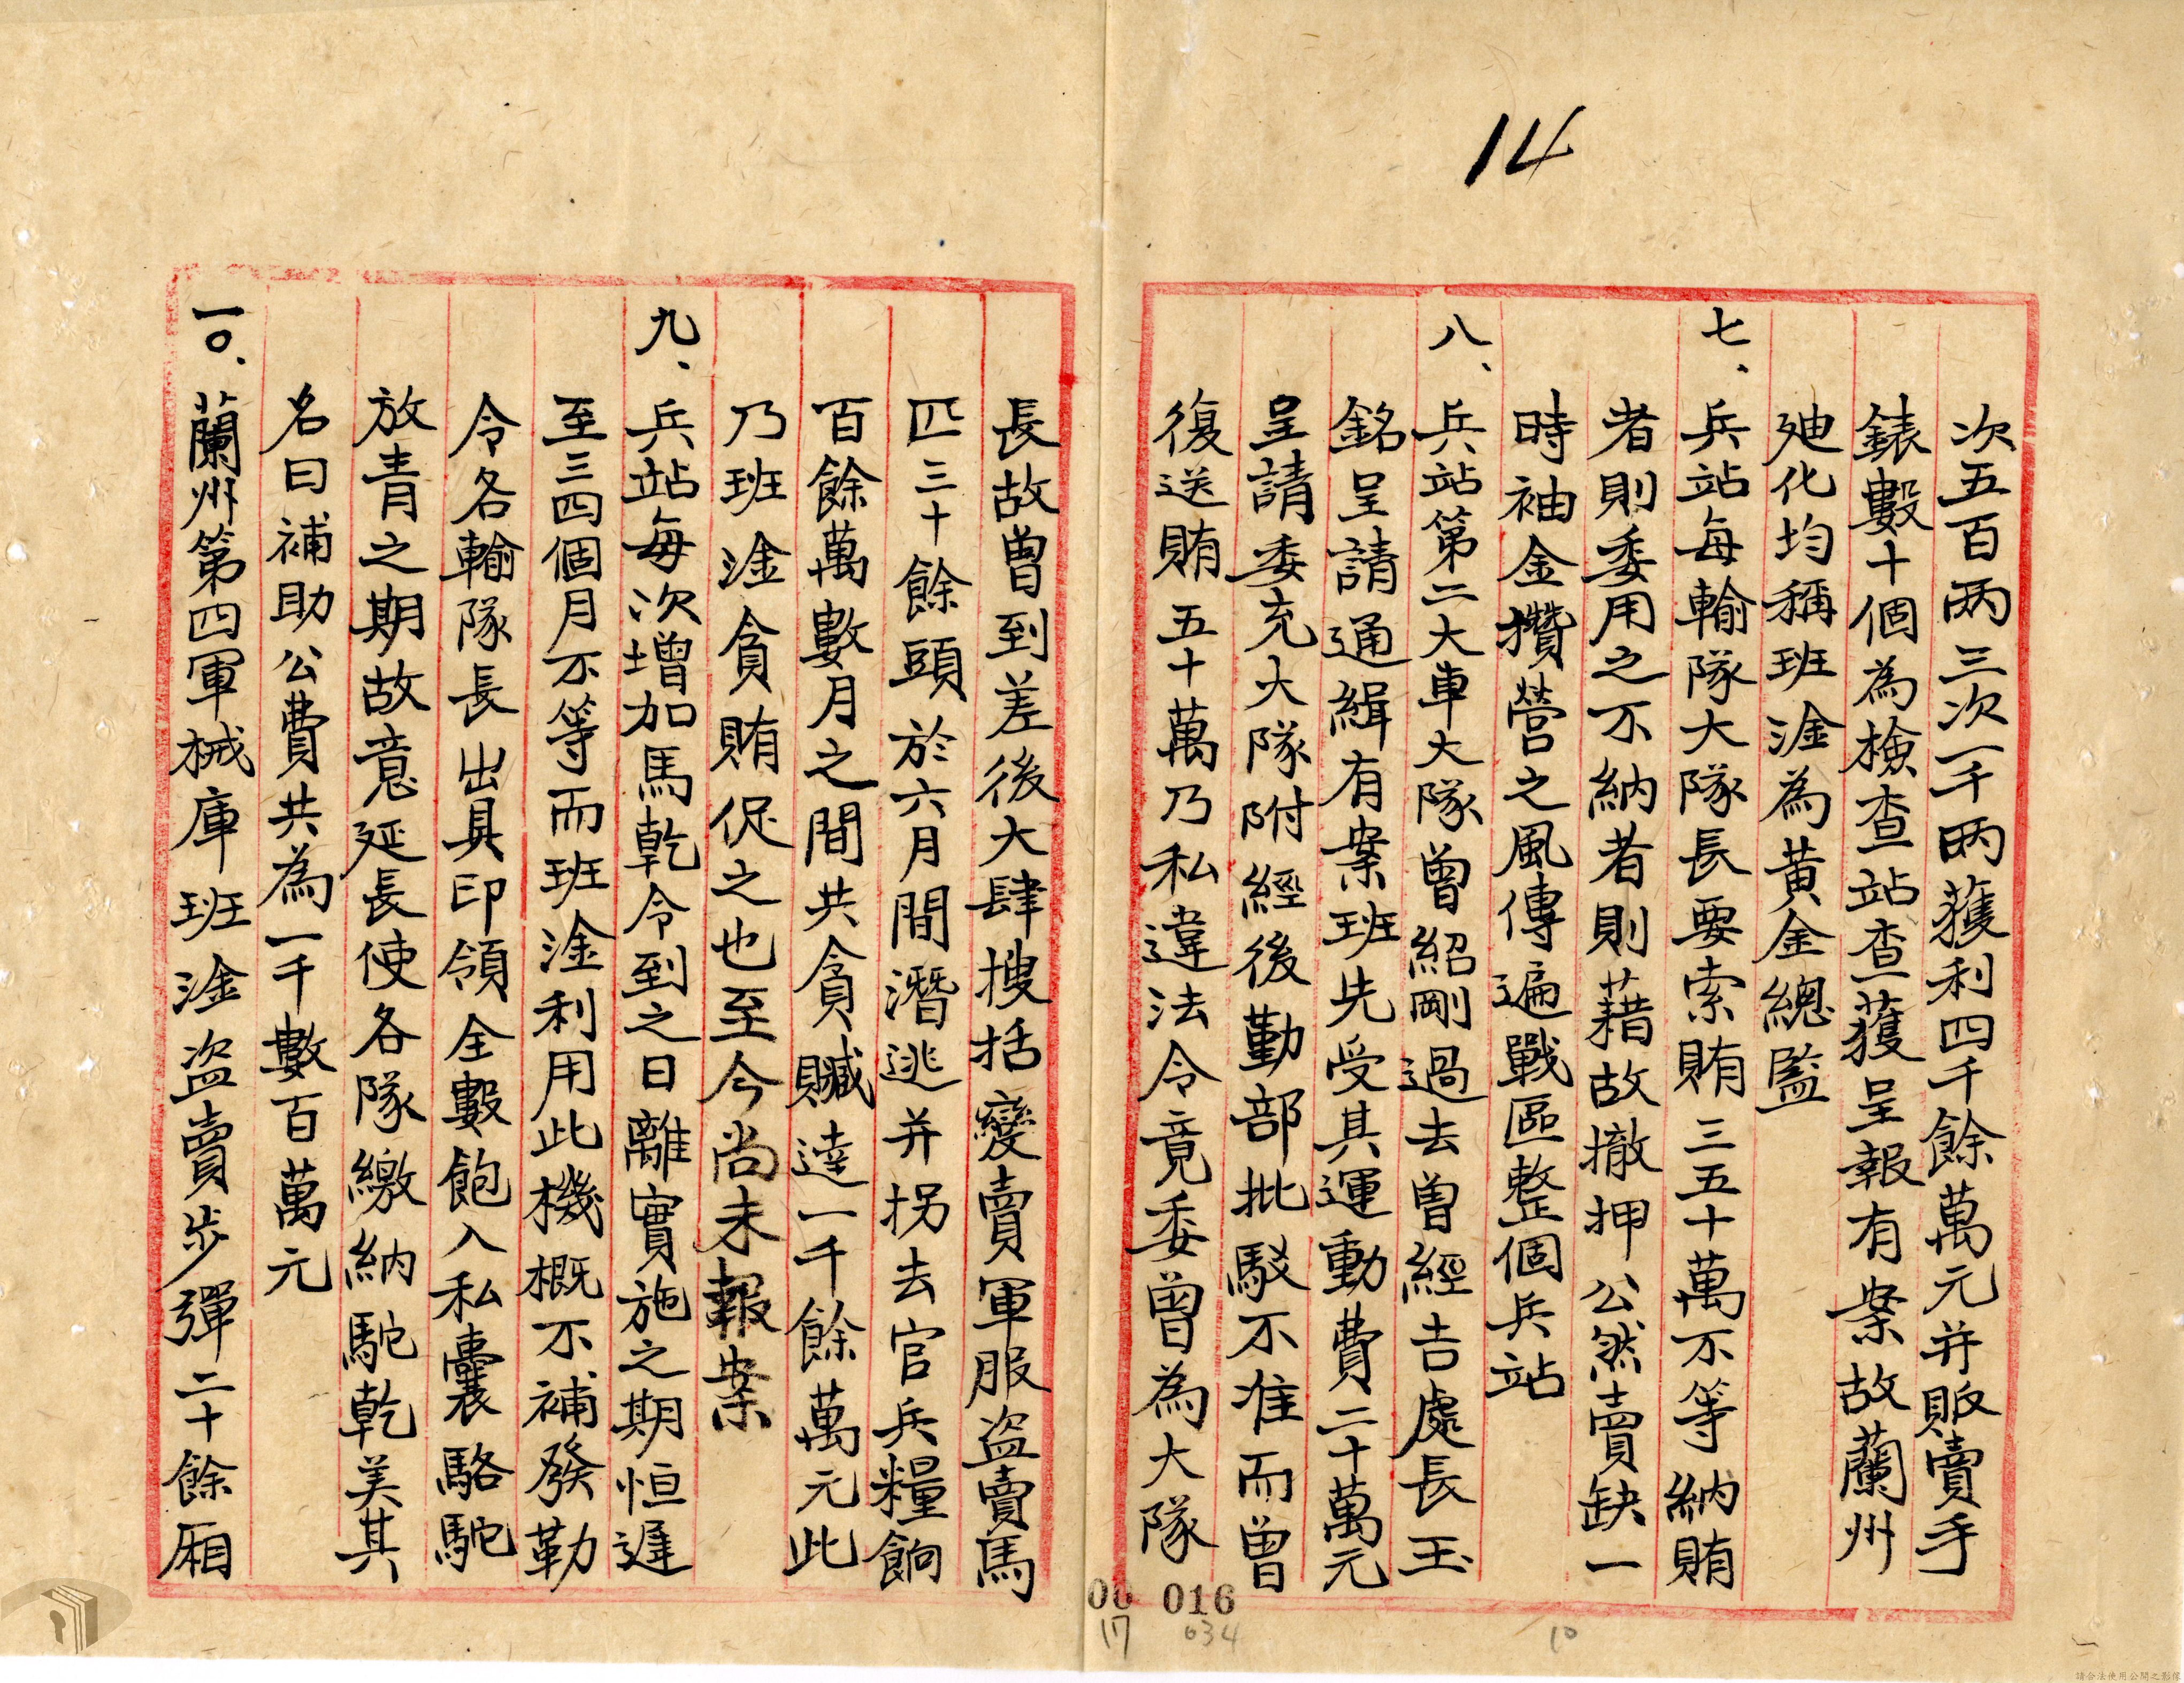 14
次五百兩三次一千兩獲利四千餘萬元并販賣手
錶數十個為檢查站查獲呈報有案故蘭州
廸化均稱班淦為黃金總監
七、兵站每輸隊大隊長要索賄三五十萬不等納賄
者則委用之不納者則藉故撤押公然賣缺一
時袖金攢營之風傳遍戰區整個兵站
八、兵站第二大車大隊曾紹剛過去曾經吉處長玉
銘呈請通緝有案班先受其運動費二十萬元
呈請委充大隊附經後勤部批駁不准而曾
復送賄五十萬乃私違法令竟委曾為大隊
長故曾到差後大肆搜括變賣軍服盗賣馬
匹三十餘頭於六月間潛逃并拐去官兵糧餉
百餘萬數月之間共貪贓達一千餘萬元此
乃班淦貪賄促之也至今尚未報案
九、兵站每次增加馬乾令到之日離實施之期恒遲
至三四個月不等而班淦利用此機概不補發勒
令各輸隊長出具印領全數飽入私囊駱駝
放青之期故意延長使各隊繳納駝乾美其
名曰補助公費共為一千數百萬元
一〇、蘭州第四軍械庫班淦盗賣步彈二十餘厢
00 016
17 034 10
請合法使用公開之影像